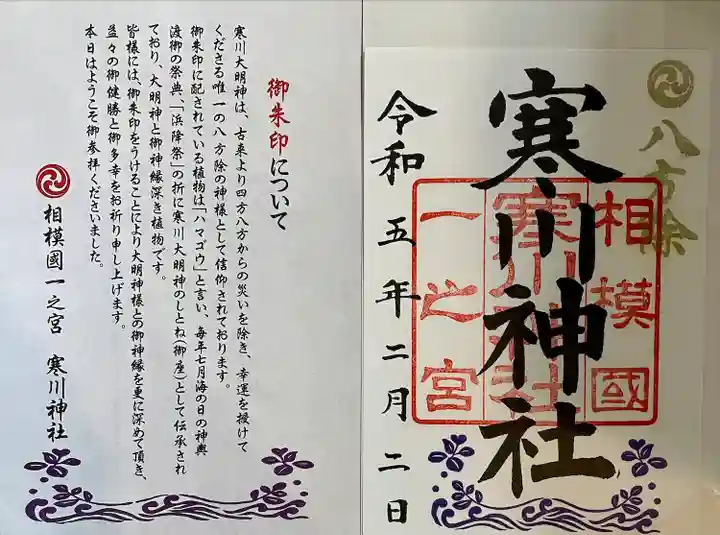 御朱印について
寒川大明神は、古来より四方八方からの災いを除き、幸運を授けて
くださる唯一の八方除の神様として信仰されております。
御朱印に配されている植物は「ハマゴウ」と言い、毎年七月海の日の神輿
渡御の祭典、「浜降祭」の折に寒川大明神のしとね(御座)として伝承され
ており、大明神と御神縁深き植物です。
皆様には、御朱印をうけることにより大明神様との御神縁を更に深めて頂き、
益々の御健勝と御多幸をお祈り申し上げます。
本日はようこそ御参拝くださいました。
相模國一之宮 寒川神社
八方除
相模國
寒川神社
一之宮
寒川神社
令和五年二月二日